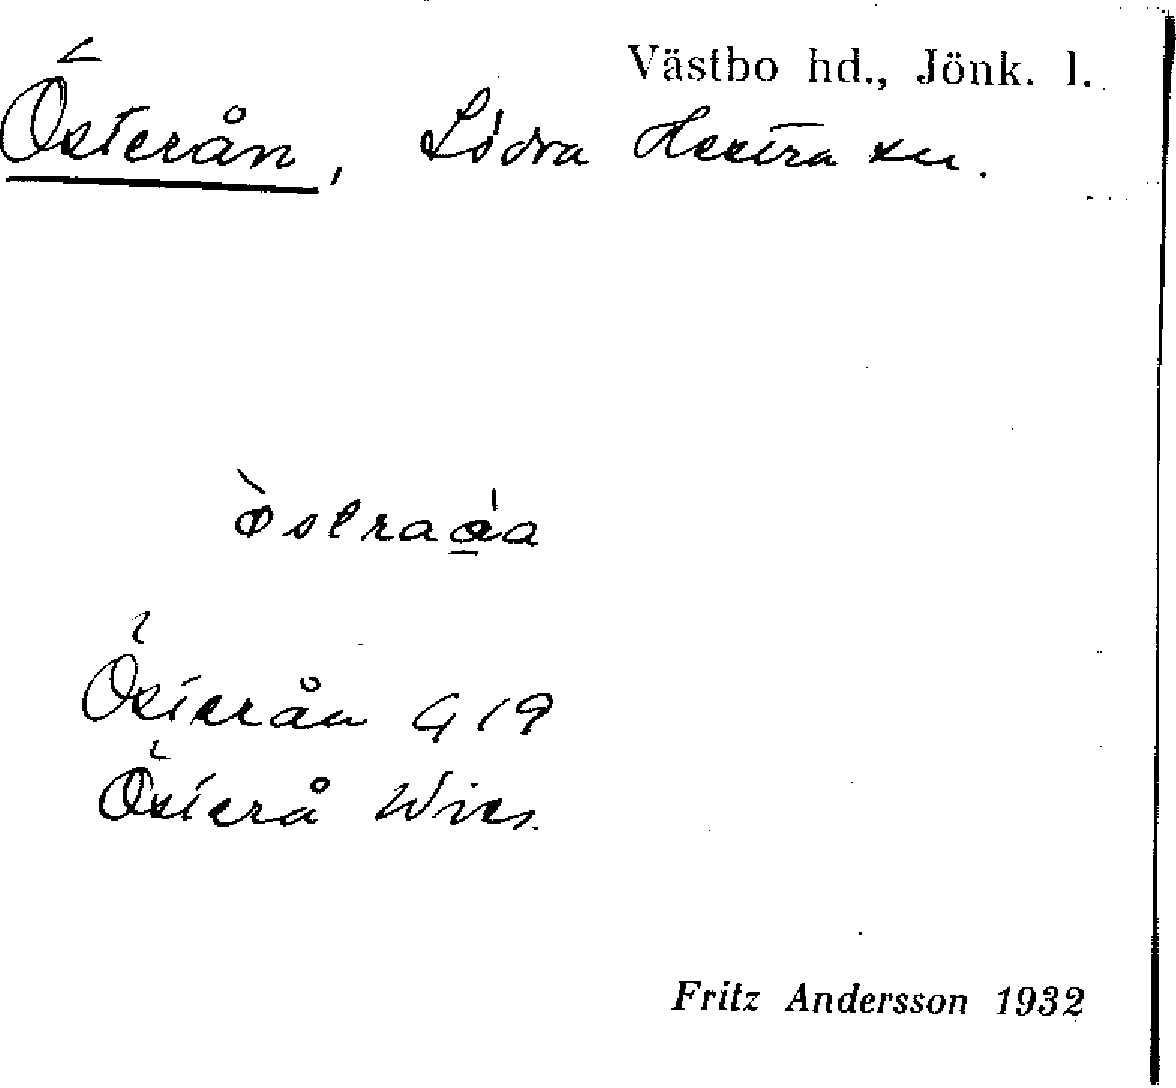 Västbo hd., Jönk. l.
Österån, Södra Hestra sn.
òstraǫ́a
Österån G 19
Österå Wies.
Fritz Andersson 1932